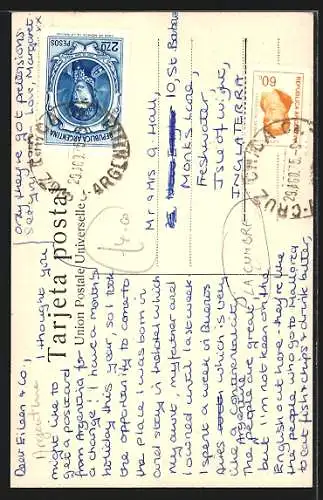 Tarjeta postal
Union Postale Universelle
Argentine
Dear Eileen & Co,
I thought you
might like to
get a postcard
from Argentina for
a change!! I have a months
holiday this year so I took
the opportunity to come to
the place I was born in
and stay in the hotel which
my aunt, my father and
I owned until last week
I spent a week in Buenos
Aires which is very
like a continental city
The people are great
but I'm not keen on the
English out here - they're like
the people who go to Mallorca
to eat fish & chips & drink bitter,
(any they've got pretensions.
See you soon - Love, Margaret
xx
£4-00
LA CUMBRE
Mr & Mrs G. Hall,
10, St Barbara
Monks Lane,
Freshwater,
Isle of Wight,
INGLATERRA
REPUBLICA ARGENTINA
2,70
PESOS
60c.
REPUBLICA ARGENTINA
CRUZ CHICA
ARGENTINA